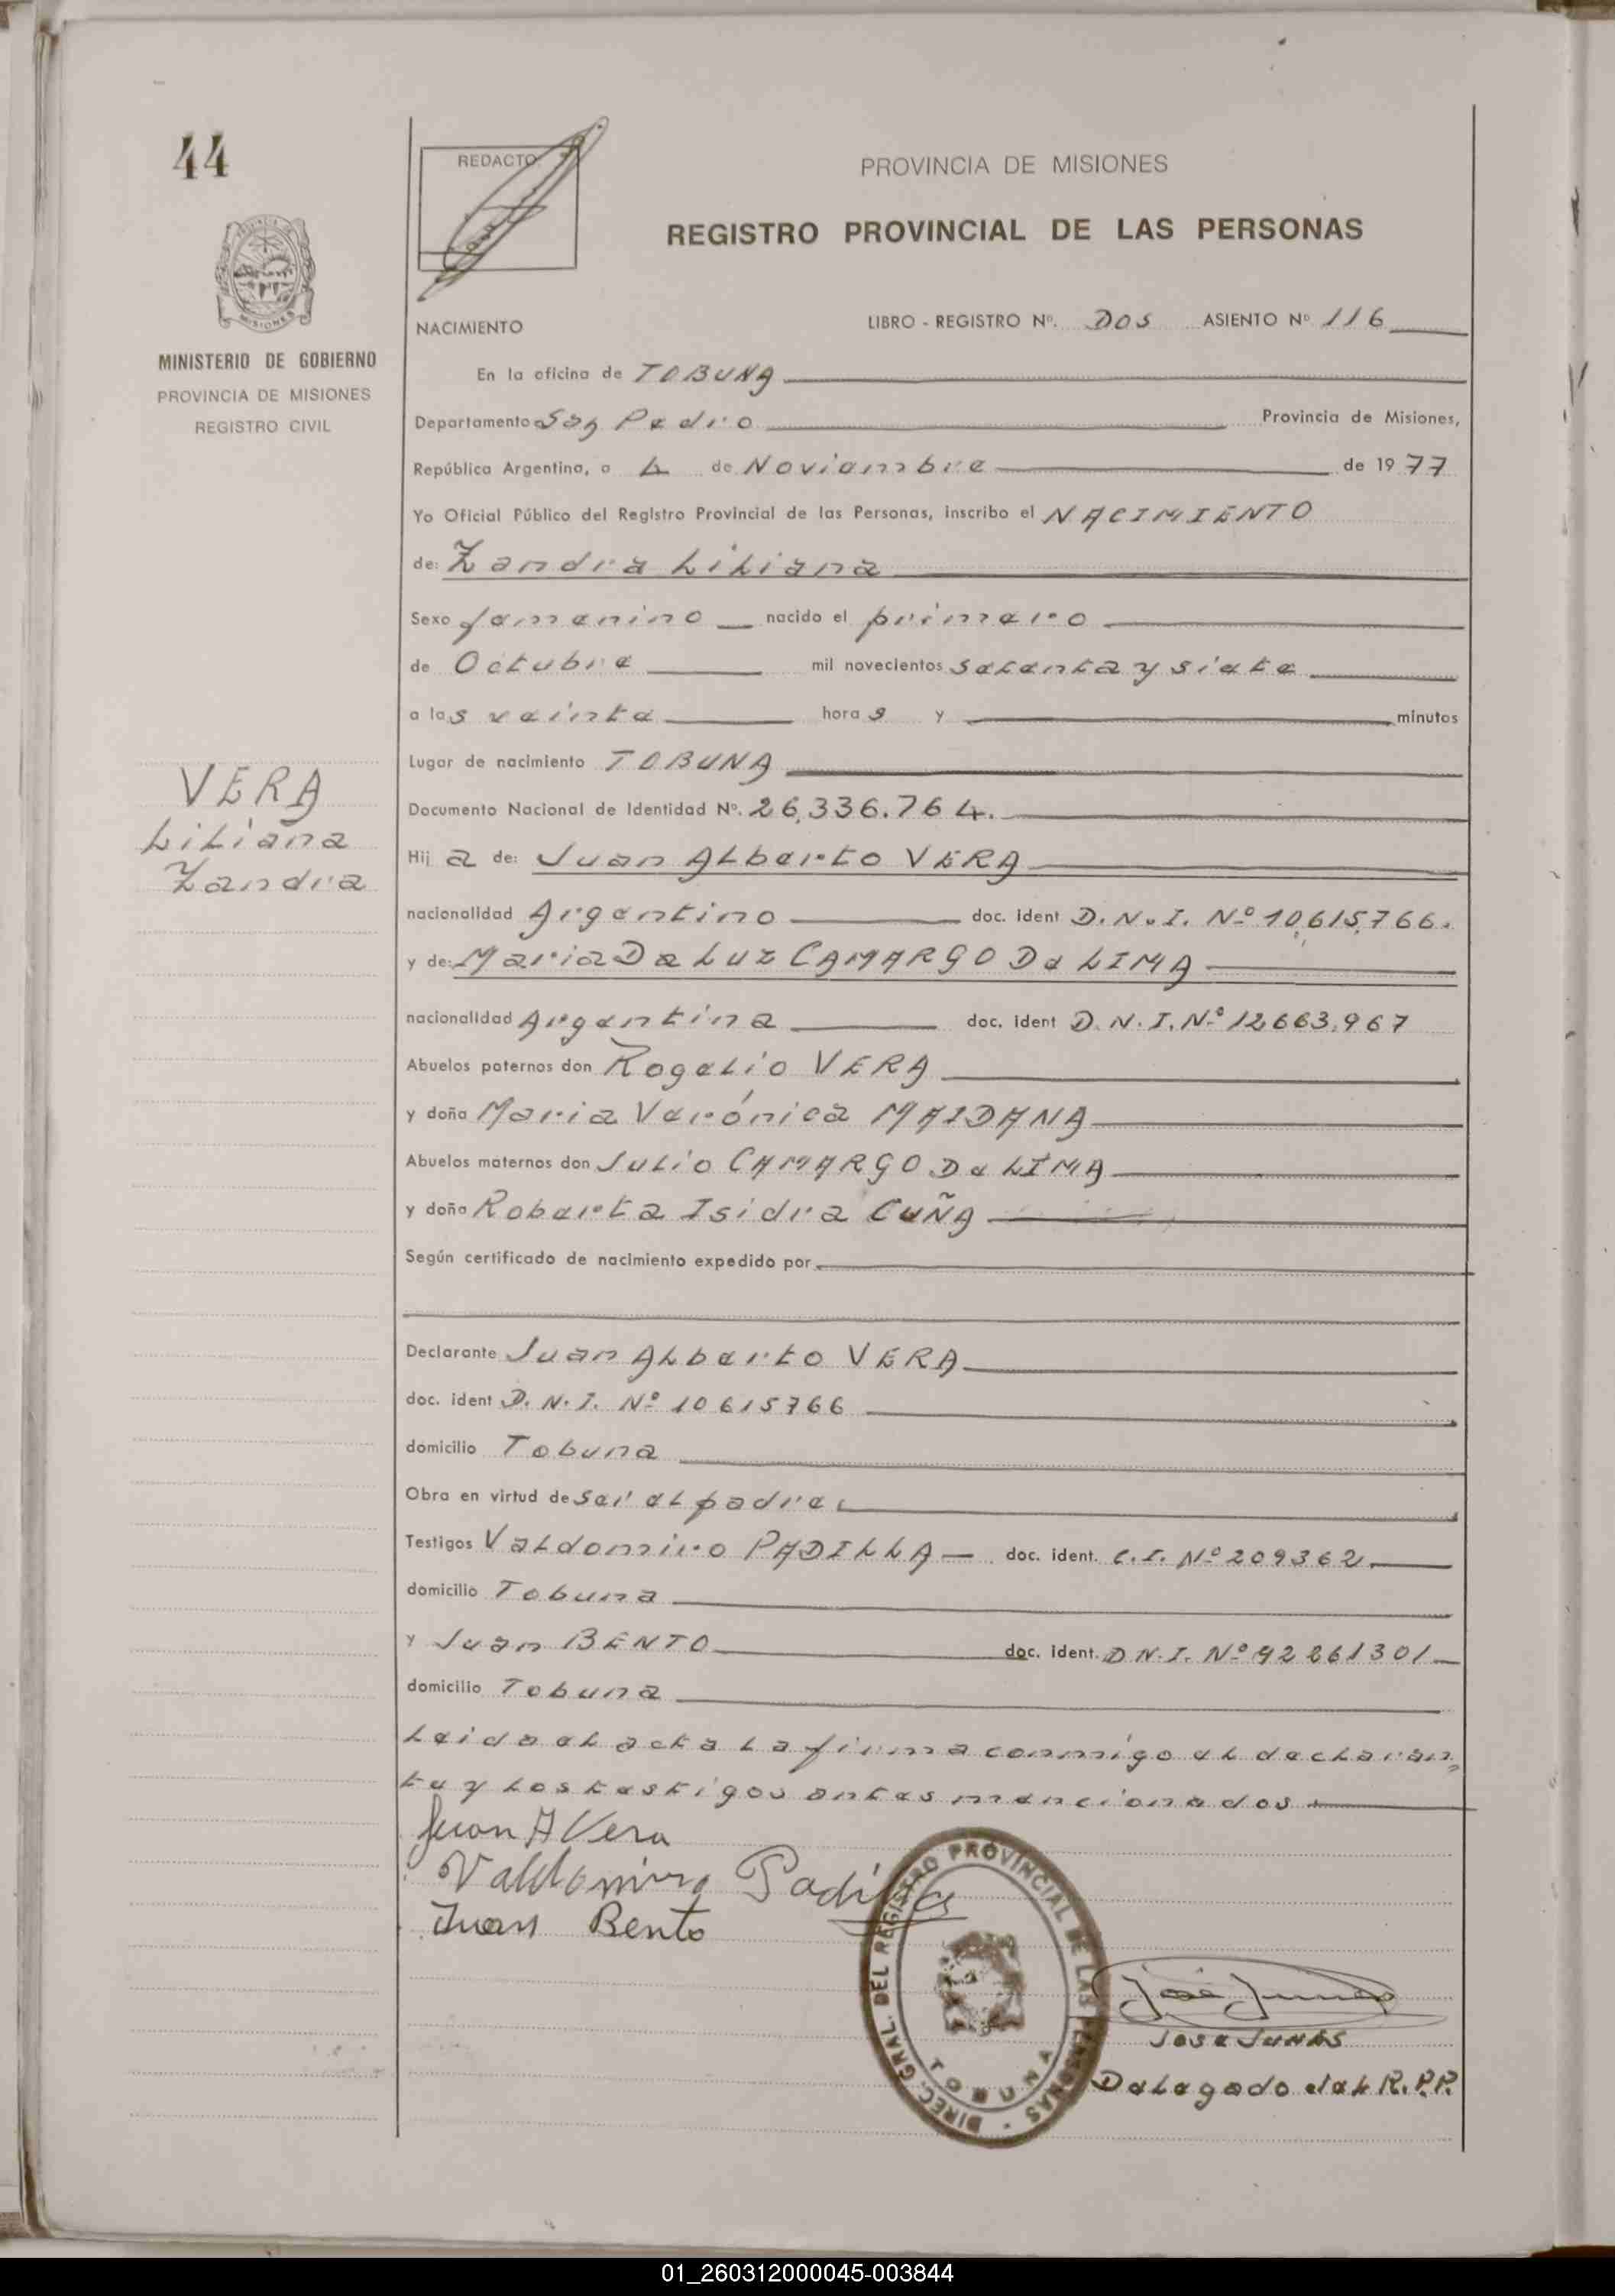 44
REDACTO
PROVINCIA DE MISIONES
REGISTRO PROVINCIAL DE LAS PERSONAS
MISIONES
MINISTERIO DE GOBIERNO
PROVINCIA DE MISIONES
REGISTRO CIVIL
NACIMIENTO
LIBRO - REGISTRO Nº. DOS ASIENTO Nº 116
En la oficina de TOBUNA
Departamento San Pedro Provincia de Misiones,
República Argentina, a 4 de Noviembre de 1977
Yo Oficial Público del Registro Provincial de las Personas, inscribo el NACIMIENTO
de: Zandra Liliana
Sexo femenino nacido el primero
de Octubre mil novecientos setenta y siete
a las veinte horas y minutos
Lugar de nacimiento TOBUNA
VERA
Liliana
Zandra
Documento Nacional de Identidad Nº. 26,336.764.
Hija de: Juan Alberto VERA
nacionalidad Argentino doc. ident D.N.I. Nº 10,615,766.
y de: Maria De Luz CAMARGO De LIMA
nacionalidad Argentina doc. ident D.N.I. Nº 12663,967
Abuelos paternos don Rogelio VERA
y doña Maria Verónica MAIDANA
Abuelos maternos don Julio CAMARGO De LIMA
y doña Roberta Isidra CUÑA
Según certificado de nacimiento expedido por
Declarante Juan Alberto VERA
doc. ident D.N.I. Nº 10615766
domicilio Tobuna
Obra en virtud de ser el padre
Testigos Valdomiro PADILLA doc. ident. C.I. Nº 209362
domicilio Tobuna
y Juan BENTO doc. ident. D.N.I. Nº 92261301
domicilio Tobuna
Leida el acta la firma conmigo el declaran
te y los testigos antes mencionados
Juan A Vera
Valdomiro Padilla
Juan Bento
DIREC. GRAL. DEL REGISTRO PROVINCIAL DE LAS PERSONAS - TOBUNA
Jose JUNES
Delegado del R.P.P.
01_260312000045-003844